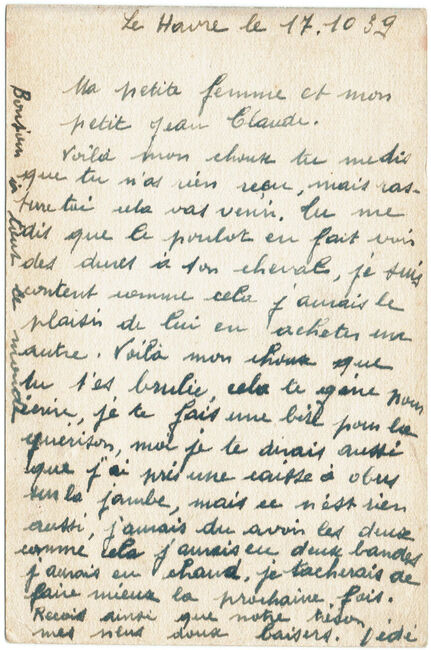 Le Havre le 17.10 39
Ma petite femme et mon
petit Jean Claude.
Voilà mon choux tu me dis
que tu n'as rien reçu, mais ras-
sure toi cela vas venir. Tu me
dis que le poulot en fait voir
des dures à son cheval, je suis
content comme cela j'aurais le
plaisir de lui en acheter un
autre. Voilà mon choux que
tu t'es brulée, cela te gène pour
écrire, je te fais une bise pour la
guérison, moi je te dirais aussi
que j'ai pris une caisse à obus
sur la jambe, mais ce n'est rien
aussi, j'aurais du avoir les deux
comme cela j'aurais eu deux bandes
j'aurais eu chaud, je tacherais de
faire mieux la prochaine fois.
Recois ainsi que notre trésor
mes plus doux baisers. Dédé
Bonjour à tout le monde